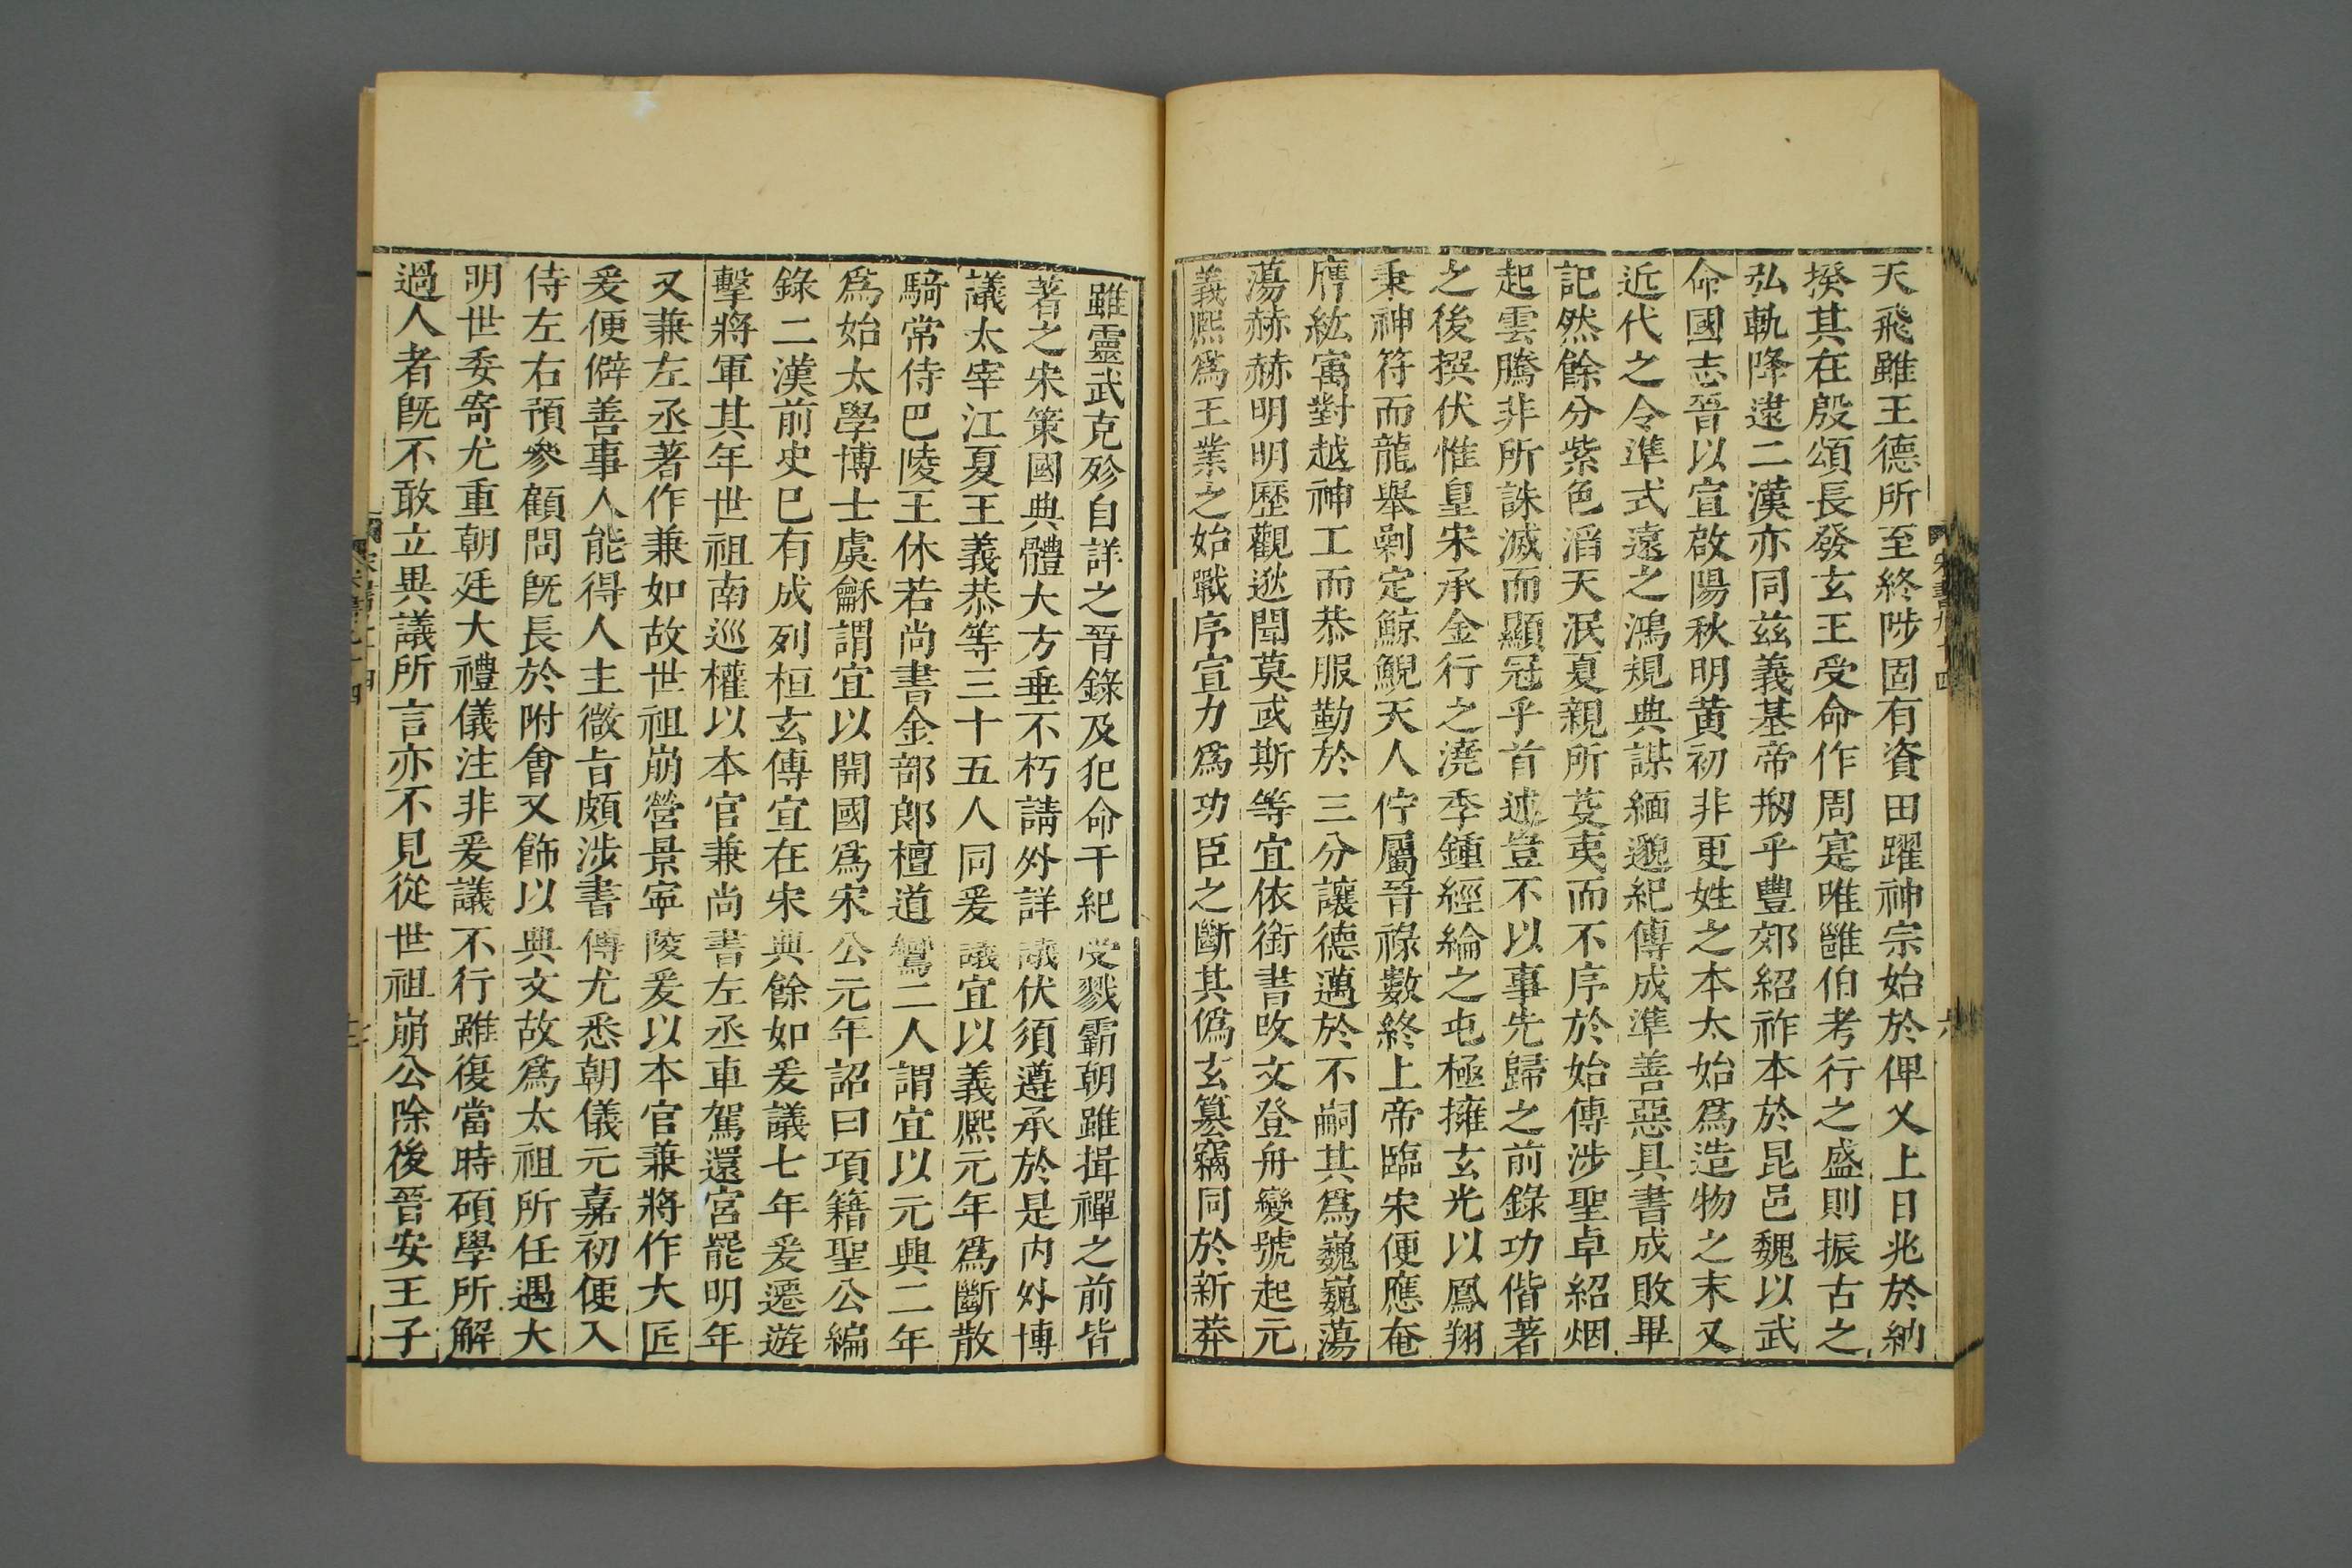 天飛雖王德所至終陟固有資田躍神宗始於俾乂上日兆於納
揆其在殷頌長發玄王受命作周寔唯雝伯考行之盛則振古之
弘軌降逮二漢亦同茲義基帝刱乎豐郊紹祚本於昆邑魏以武
命國志晉以宣啟陽秋明黃初非更姓之本太始爲造物之末又
近代之令準式遠之鴻規典謀緬邈紀傳成準善惡具書成敗畢
記然餘分紫色滔天泯夏親所芟夷而不序於始傳涉聖卓紹烟
起雲騰非所誅滅而顯冠乎首述豈不以事先歸之前錄功偕著
之後撰伏惟皇宋承金行之澆季鍾經綸之屯極擁玄光以鳳翔
秉神符而龍舉剿定鯨鯢天人佇屬晉祿數終上帝臨宋便應奄
膺紘㝢對越神工而恭服勤於三分讓德邁於不嗣其爲巍巍蕩
蕩赫赫明明歷觀逖聞莫或斯等宜依銜書攺文登舟變號起元
義熙爲王業之始戰序宣力爲功臣之斷其僞玄篡竊同於新莽
雖靈武克殄自詳之晉錄及犯命干紀受戮霸朝雖揖禪之前皆
著之宋策國典體大方垂不朽請外詳議伏須遵承於是內外博
議太宰江夏王義恭等三十五人同爰議宜以義熙元年爲斷散
騎常侍巴陵王休若尚書金部郎檀道鸞二人謂宜以元興二年
爲始太學博士虞龢謂宜以開國爲宋公元年詔曰項籍聖公編
錄二漢前史已有成列桓玄傳宜在宋典餘如爰議七年爰遷遊
擊將軍其年世祖南巡權以本官兼尚書左丞車駕還宮罷明年
又兼左丞著作兼如故世祖崩營景寧陵爰以本官兼將作大匠
爰便僻善事人能得人主微旨頗涉書傳尤悉朝儀元嘉初便入
侍左右預參顧問旣長於附會又飾以典文故爲太祖所任遇大
明世委寄尤重朝廷大禮儀注非爰議不行雖復當時碩學所解
過人者旣不敢立異議所言亦不見從世祖崩公除後晉安王子